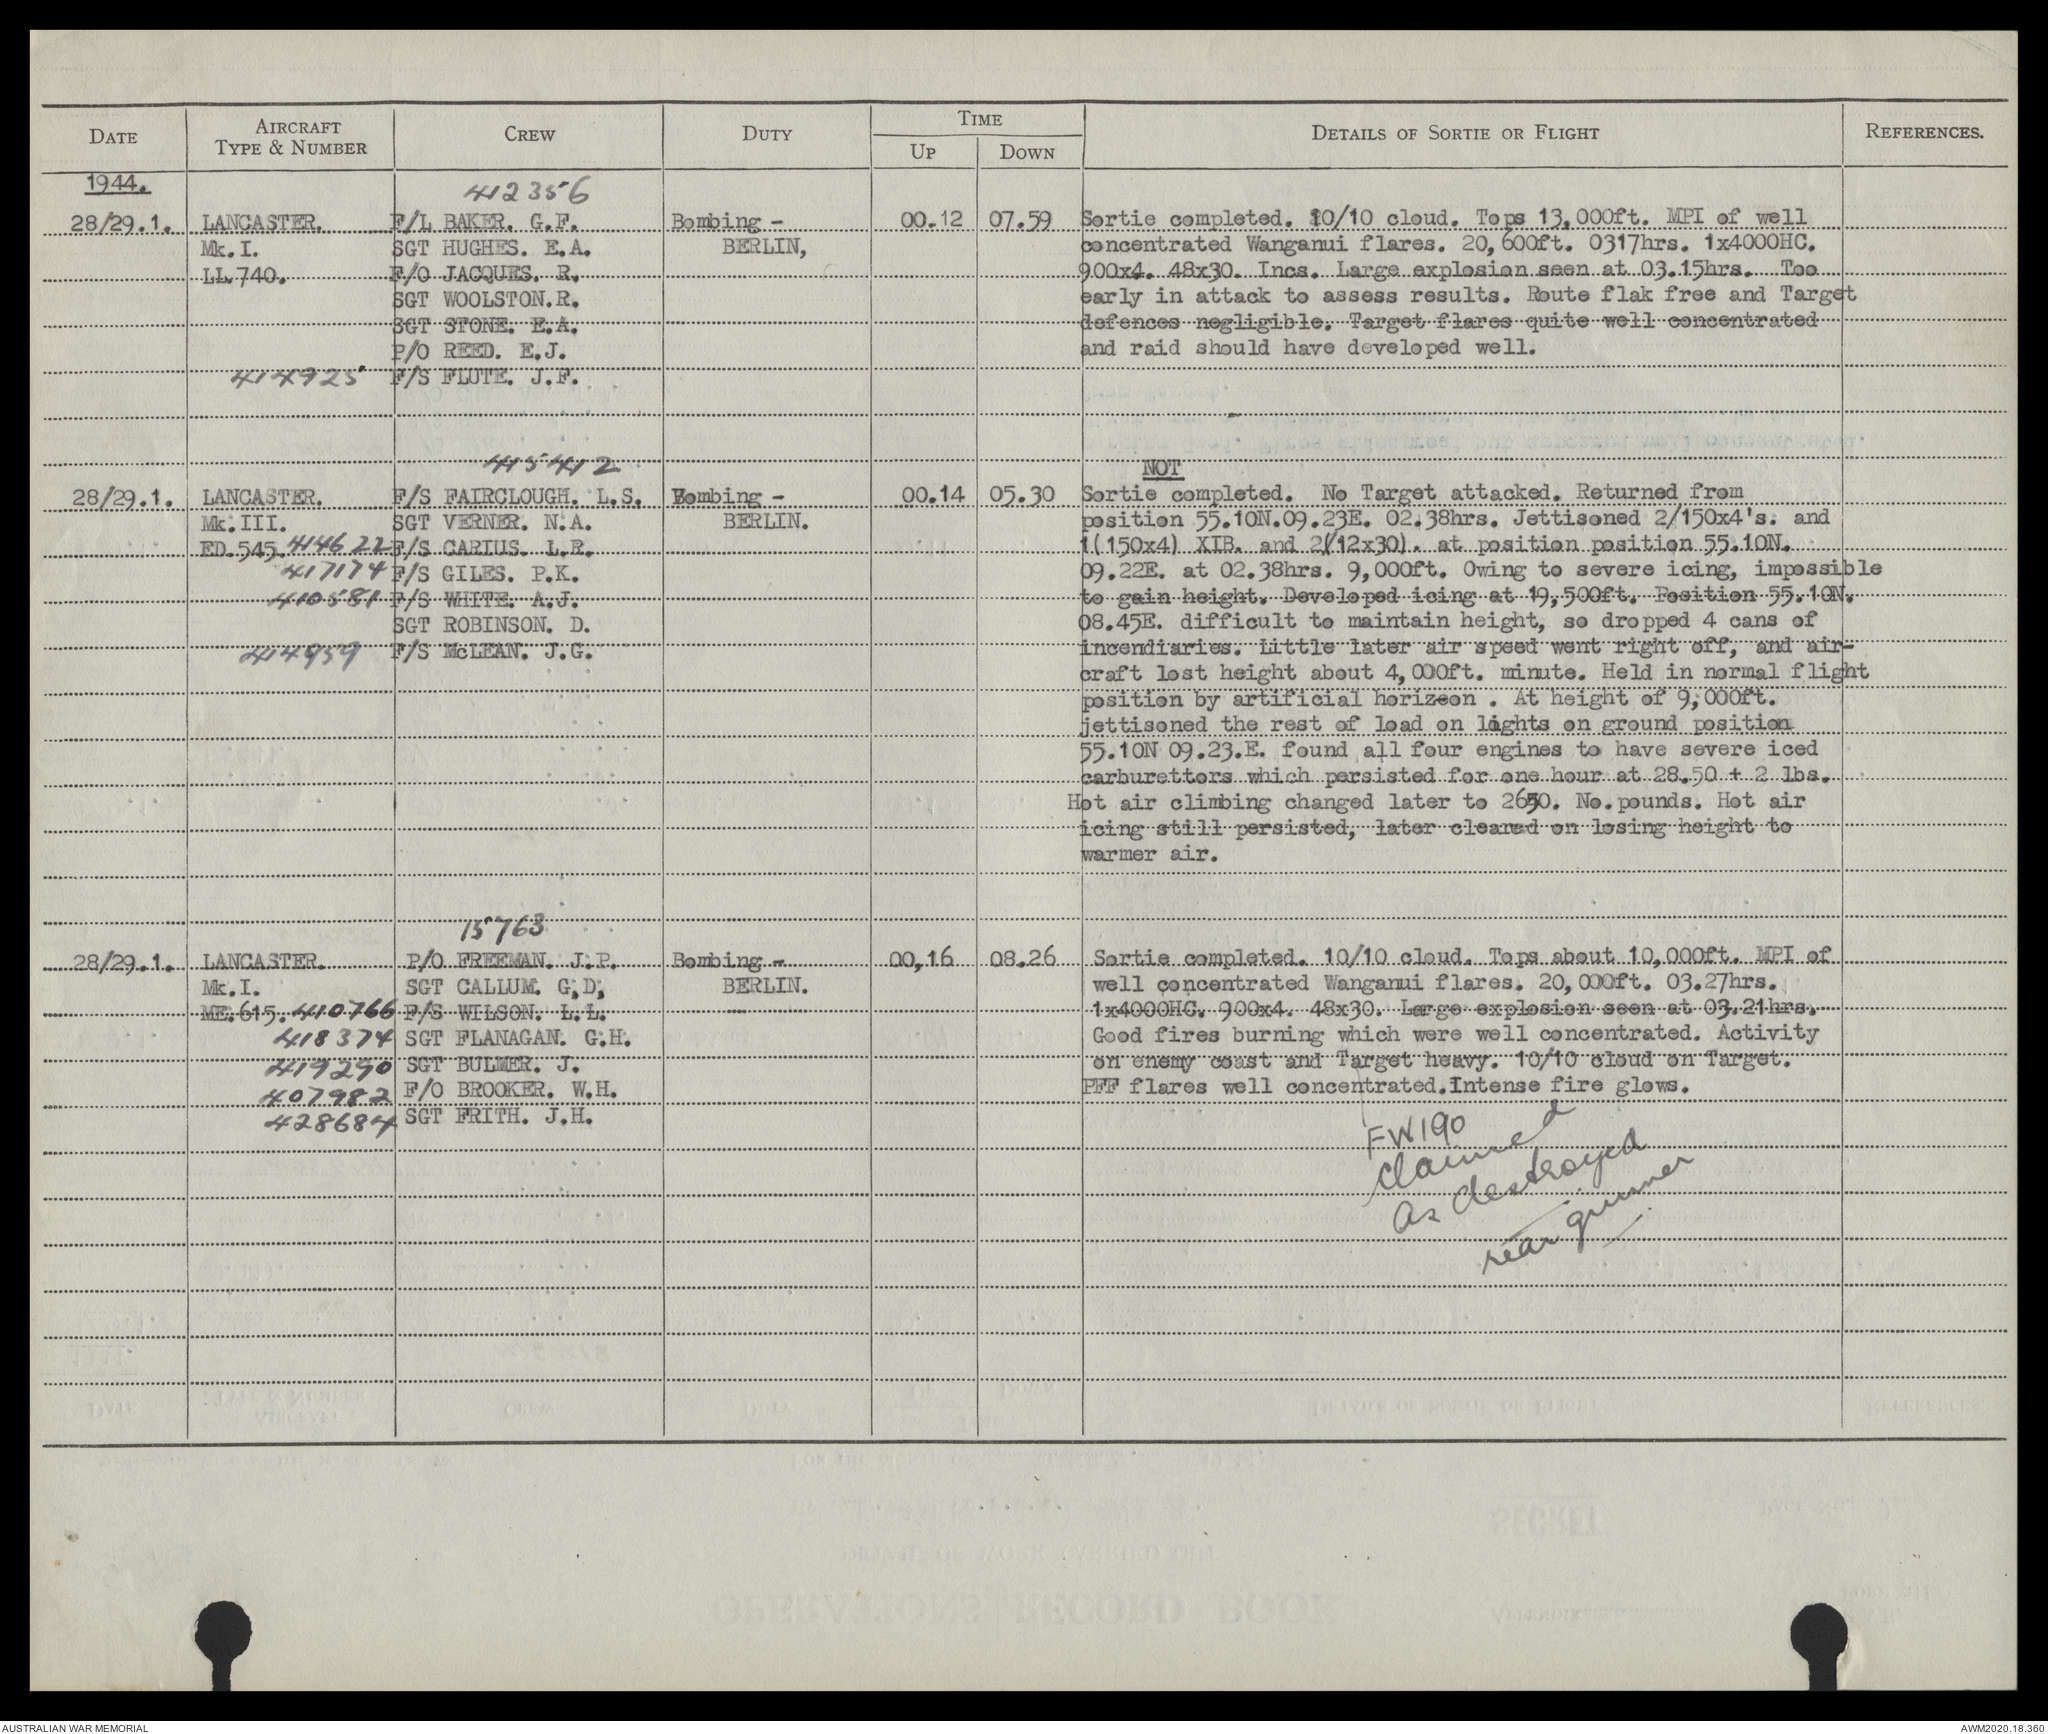 DATE AIRCRAFT TYPE & NUMBER CREW DUTY TIME UP DOWN DETAILS OF SORTIE OR FLIGHT REFERENCES.
1944.
412356
28/29.1. LANCASTER. F/L BAKER. G.F. Bombing - 00.12 07.59 Sortie completed. 10/10 cloud. Tops 13,000ft. MPI of well
Mk.I. SGT HUGHES. E.A. BERLIN, concentrated Wanganui flares. 20,600ft. 0317hrs. 1x4000HC.
LL.740. F/O JACQUES. R. 900x4. 48x30. Incs. Large explosion seen at 03.15hrs. Too
SGT WOOLSTON.R. early in attack to assess results. Route flak free and Target
SGT STONE. E.A. defences negligible. Target flares quite well concentrated
P/O REED. E.J. and raid should have developed well.
414925 F/S FLUTE. J.F.
415412 NOT
28/29.1. LANCASTER. F/S FAIRCLOUGH. L.S. Bombing - 00.14 05.30 Sortie completed. No Target attacked. Returned from
Mk.III. SGT VERNER. N.A. BERLIN. position 55.10N.09.23E. 02.38hrs. Jettisoned 2/150x4's. and
ED.545. 414622 F/S CARIUS. L.R. 1(150x4) XIB. and 2(/12x30). at position position 55.10N.
417174 F/S GILES. P.K. 09.22E. at 02.38hrs. 9,000ft. Owing to severe icing, impossible
410581 F/S WHITE. A.J. to gain height. Developed icing at 19,500ft. Position 55.10N.
SGT ROBINSON. D. 08.45E. difficult to maintain height, so dropped 4 cans of
414959 F/S McLEAN. J.G. incendiaries. Little later air speed went right off, and air-
craft lost height about 4,000ft. minute. Held in normal flight
position by artificial horizeon . At height of 9,000ft.
jettisoned the rest of load on lights on ground position
55.10N 09.23.E. found all four engines to have severe iced
carburettors which persisted for one hour at 28.50 + 2 lbs.
Hot air climbing changed later to 2650. No.pounds. Hot air
icing still persisted, later cleared on losing height to
warmer air.
15763
28/29.1. LANCASTER. P/O FREEMAN. J.P. Bombing - 00,16 08.26 Sortie completed. 10/10 cloud. Tops about 10,000ft. MPI of
Mk.I. SGT CALLUM. G.D. BERLIN. well concentrated Wanganui flares. 20,000ft. 03.27hrs.
ME.615. 410766 F/S WILSON. L.L. 1x4000HC. 900x4. 48x30. Large explosion seen at 03.21hrs.
418374 SGT FLANAGAN. G.H. Good fires burning which were well concentrated. Activity
419290 SGT BULMER. J. on enemy coast and Target heavy. 10/10 cloud on Target.
407982 F/O BROOKER. W.H. PFF flares well concentrated.Intense fire glows.
428684 SGT FRITH. J.H.
FW190
claimed
as destroyed
rear gunner
AUSTRALIAN WAR MEMORIAL AWM2020.18.360